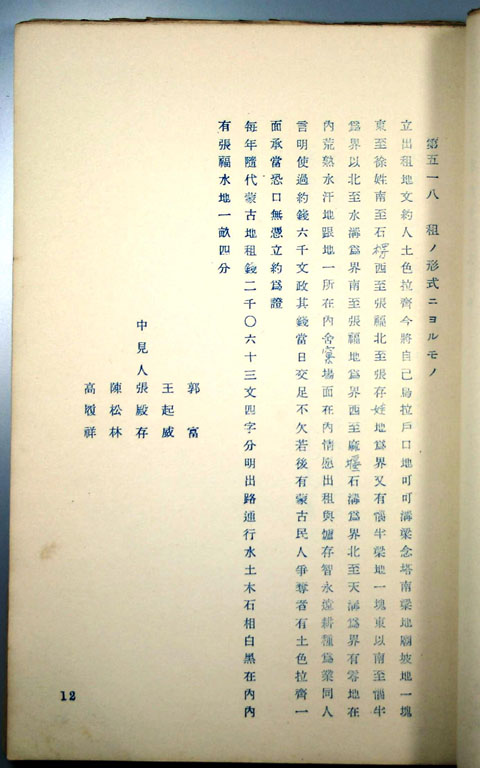 第五一八　租ノ形式ニヨルモノ
立出租地文約人土色拉齊今將自己烏拉戶口地可可溝梁念塔南梁地廟坡地一塊
東至徐姓南至石楞西至張福北至張存姓地爲界又有惱牛梁地一塊東以南至惱牛
爲界以北至水溝爲界南至張福地爲界西至廠堰石溝爲界北至天溝爲界有零地在
內荒熟水汗地跟地一所在內舍窰場面在內情愿出租與爐存智永遠耕種爲業同人
言明使過約錢六千文政其錢當日交足不欠若後有蒙古民人爭奪者有土色拉齊一
面承當恐口無憑立約爲證
每年隨代蒙古地租錢二千〇六十三文四字分明出路通行水土木石相白黑在內內
有張福水地一畝四分
郭富
王起威
中見人張殿存
陳松林
高履祥
12